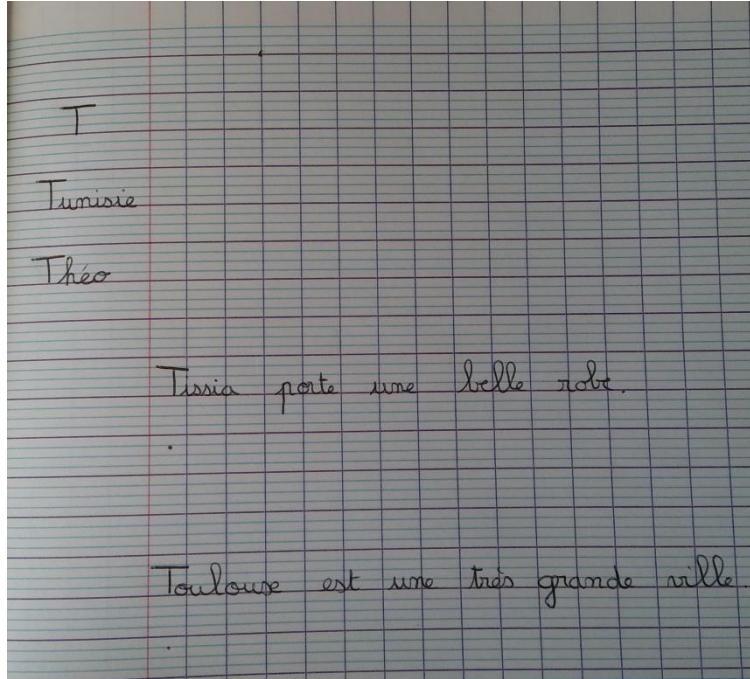 T
Tunisie
Théo
Tissia porte une belle robe.
.
Toulouse est une très grande ville.
.